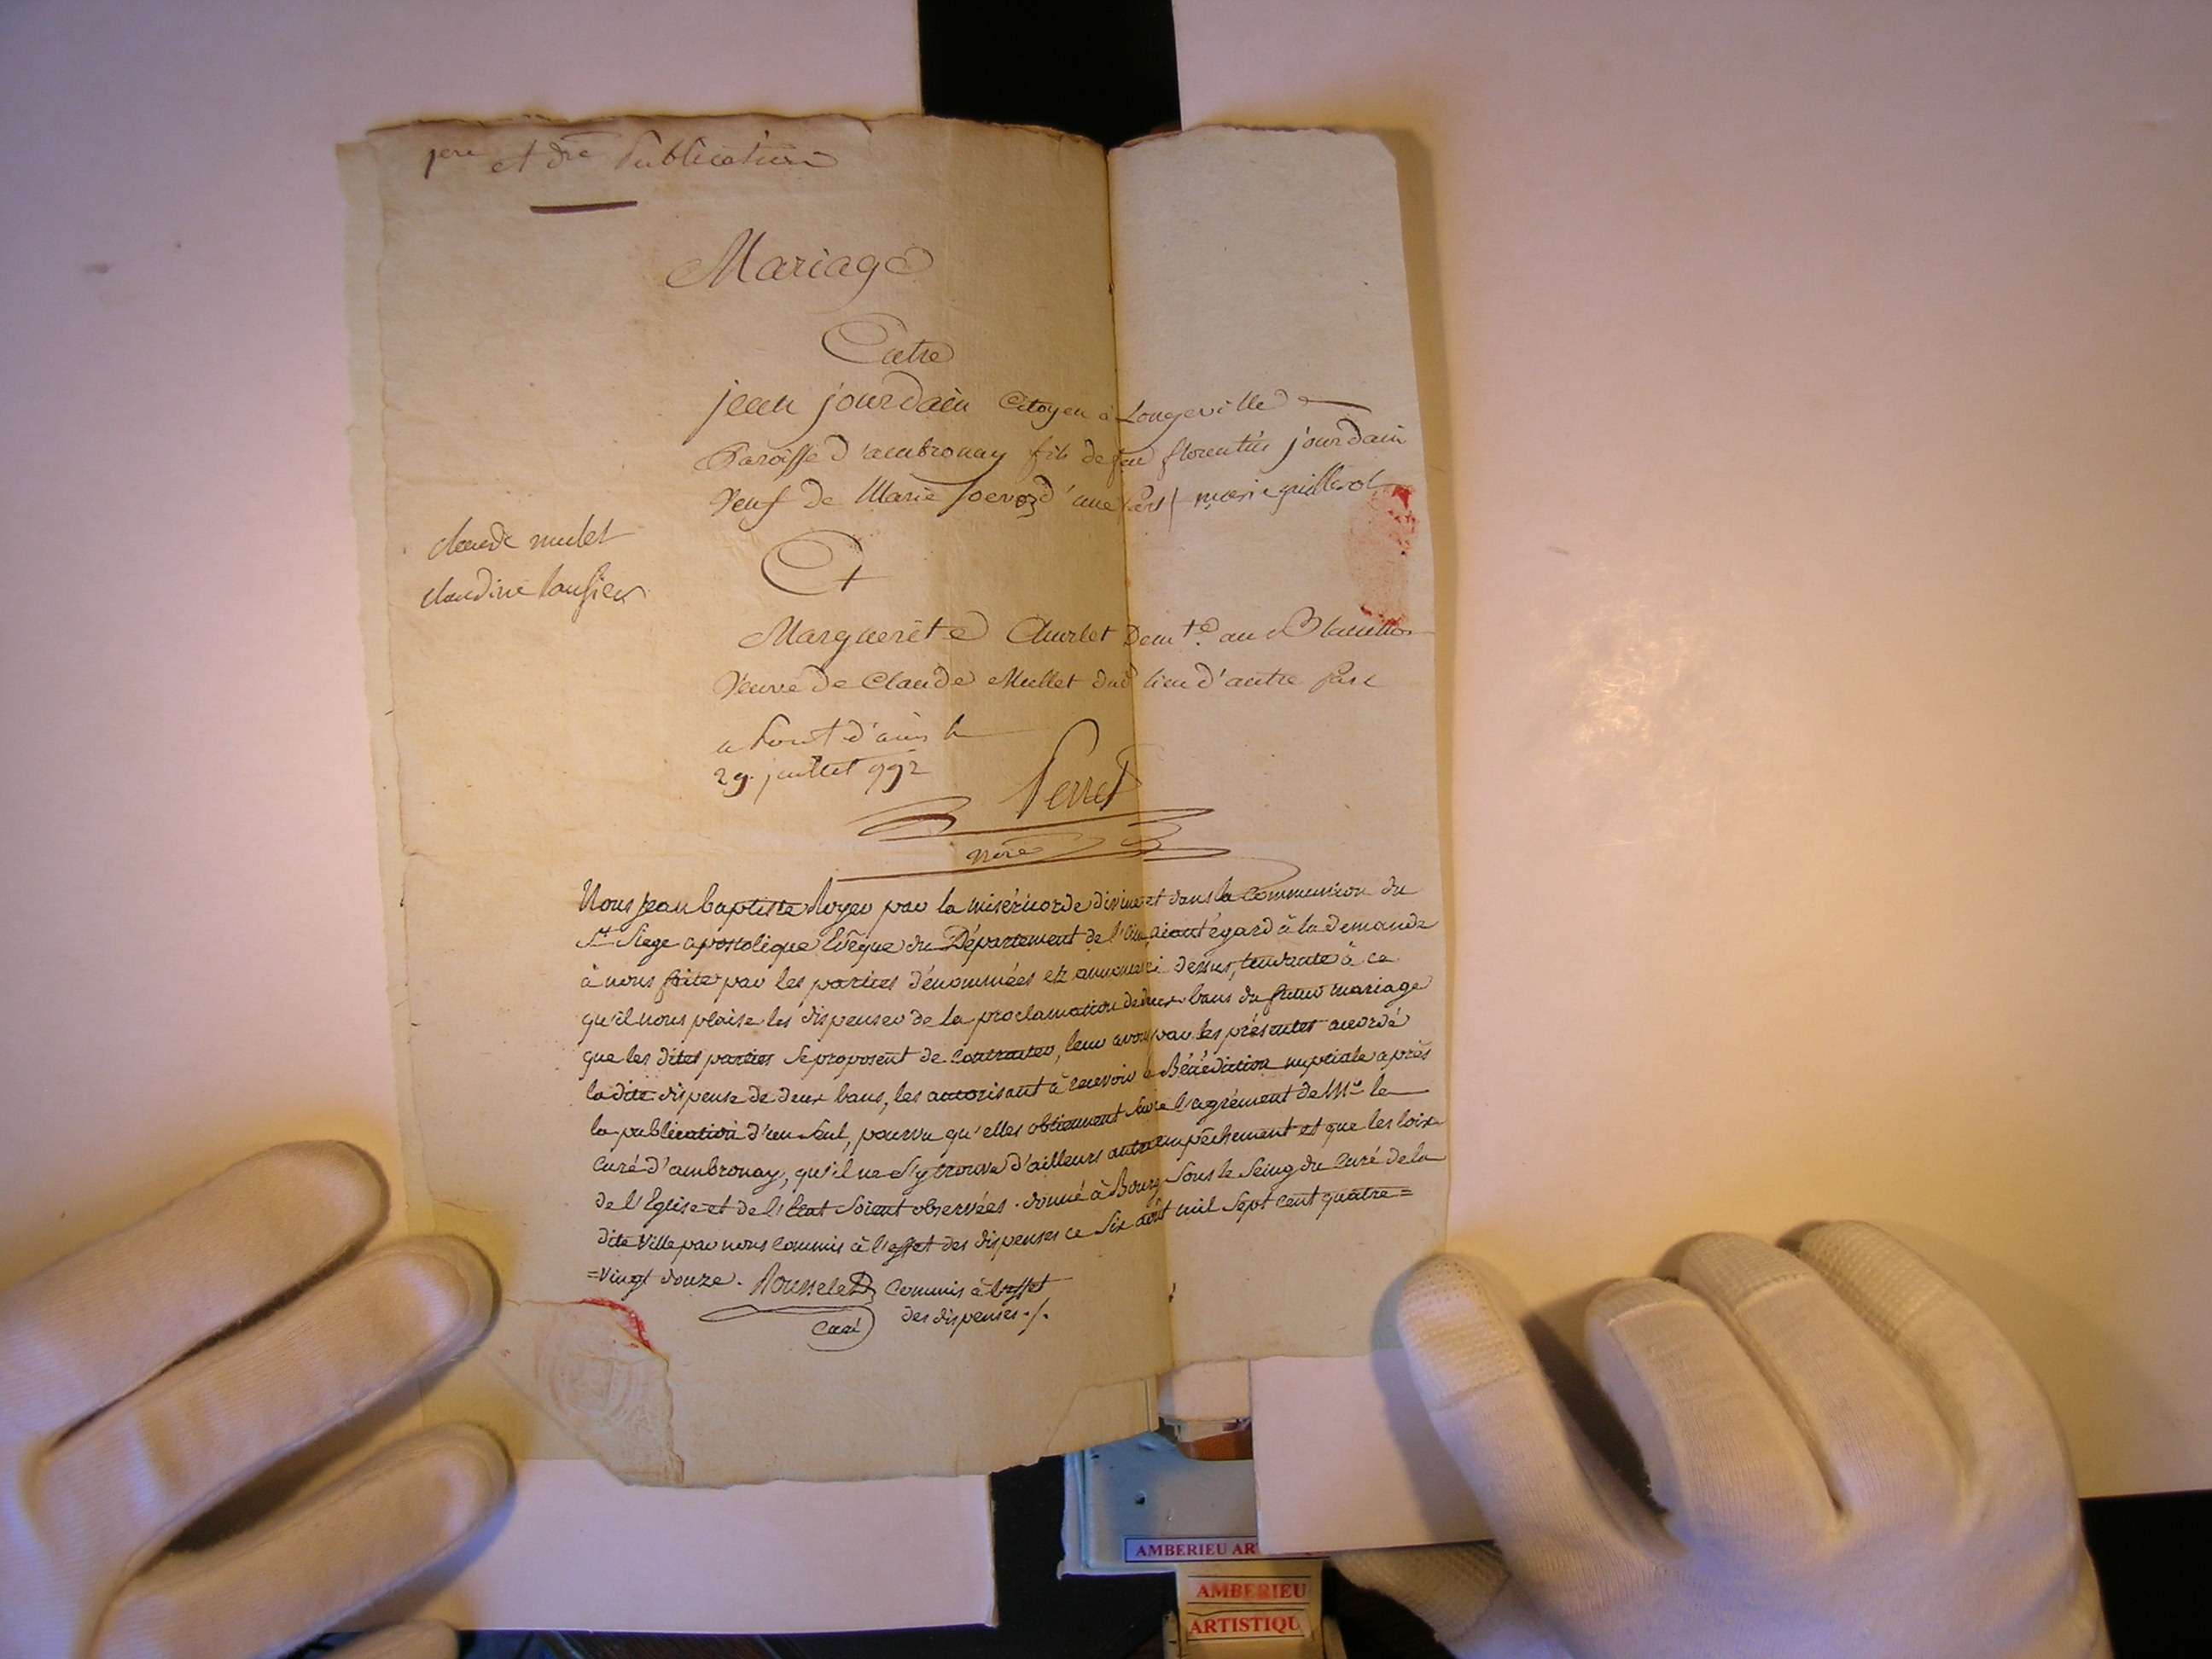 1ere et dre Publication
Mariage
Entre
jean jourdain Citoyen à Longeville
Paroisse d'ambronay fils de feu florentin jourdain
Veuf de Marie d'une Part marie guillerot
claude mulet
claudine
Et
Marguerite Churlet Demte au
Veuve de Claude Mullet dud lieu d'autre Part
a Pont d'ain le
29. juillet 992
Perret
nore
Nous Jean baptiste Royer par la miséricorde divine et dans la Communion du
St Siege apostolique Evêque du Département de l'Ain aiant égard à la demande
à nous faite par les parties dénommées et ci dessus, tendante à ce
qu'il nous plaise les dispenser de la proclamation de deux bans du futur mariage
que les dites parties se proposent de Contracter, leur avons par les présentes accordé
la dite dispense de deux bans, les autorisant à recevoir la Bénédiction nuptiale après
la publication d'un Seul, pourvu qu'elles obtiennent l'agrément de Mr le
Curé d'ambronay, qu'il ne s'y trouve d'ailleurs autre empêchement et que les loix
de l'Eglise et de l'Etat Soient observées. donné à Bourg Sous le Seing du Curé de la
dite Ville par nous Commis à l'effet des dispenses ce Six août mil Sept Cent quatre=
=vingt douze. Rousselet Commis à l'effet
Curé des dispenses./.
AMBERIEU AR
AMBERIEU
ARTISTIQU